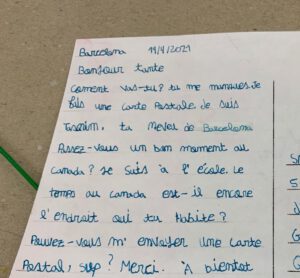 Barcelona 19/4/2021
Bonjour tante
Coment vas-tu? tu me manques. Je
fais une carte Postale. Je suis
ta de Barcelona
Passez-vous un bon moment au
canada? Je suis à l'école. Le
temps au canada est-il encore
l'endroit oui tu habite?
Pouvez-vous m'envoyer une carte
Postal, svp? Merci. À pientot
S
5
J
G
C